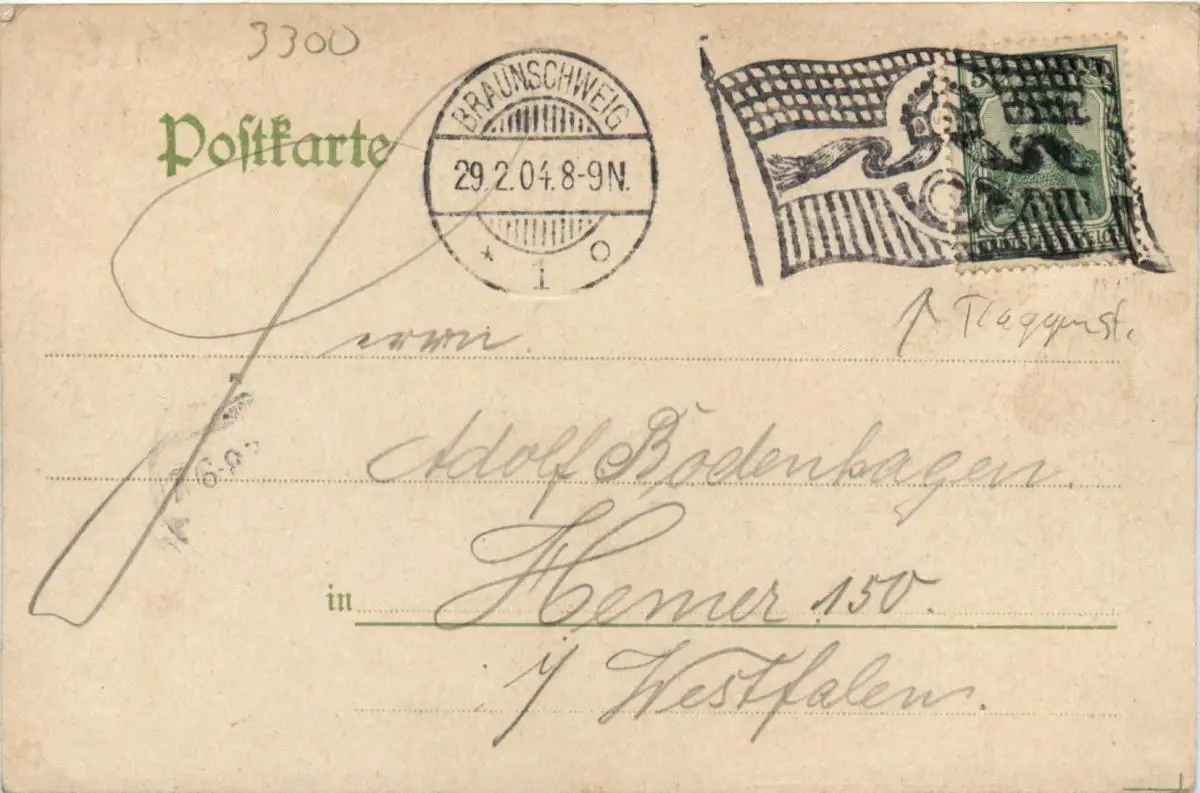 3300
Postkarte
BRAUNSCHWEIG
29.2.04.8-9N.
* 1 o
Flaggenst.
Herrn
Adolf Bödenhagen.
in Hemer 150.
i/ Westfalen.